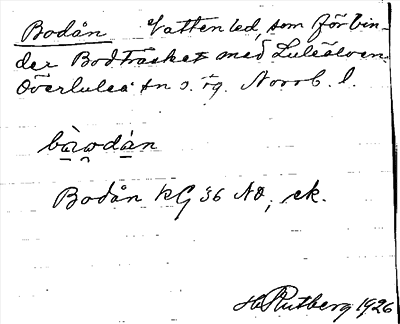 Bodån Vattenled, som förbin-
der Bodträsket med Luleälven.
Överluleå sn o. tg. Norrb. l.
bòodán
Bodån KG 36 NO, ek.
H Rutberg 1926